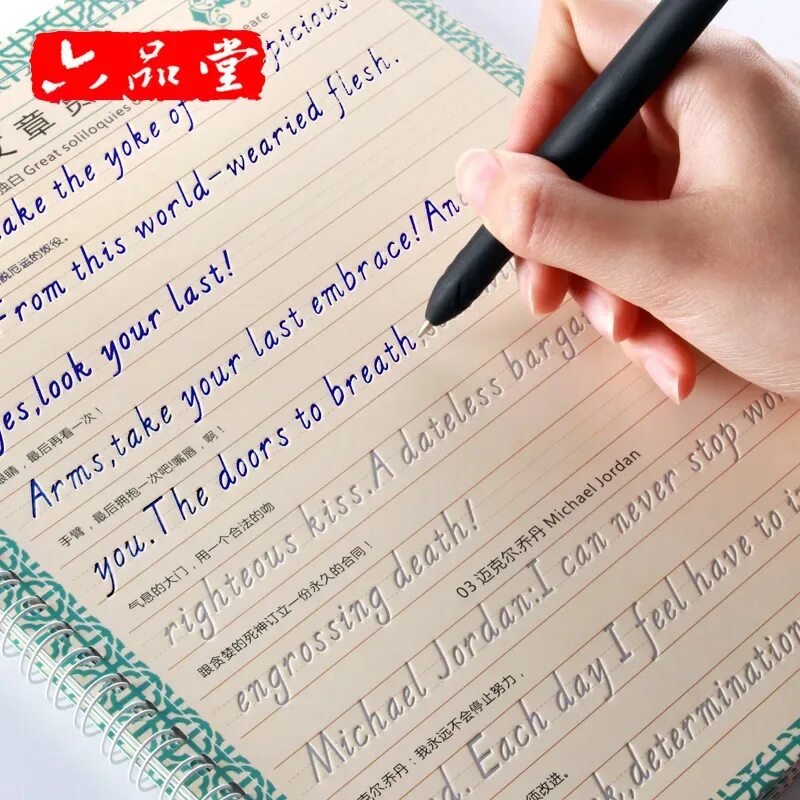 六品堂
独白 Great soliloquies
the yoke of
From this world-wearied flesh.
look your last!
眼睛，最后再看一次！
Arms,take your last embrace! And
手臂，最后拥抱一次吧!嘴唇，啊！
you.The doors to breath,
气息的大门，用一个合法的吻
righteous kiss.A dateless
跟贪婪的死神订立一份永久的合同！
engrossing death!
03 迈克尔.乔丹 Michael Jordan
Michael Jordan:I can never stop
克尔.乔丹：我永远不会停止努力，
Each day I feel have to
determination